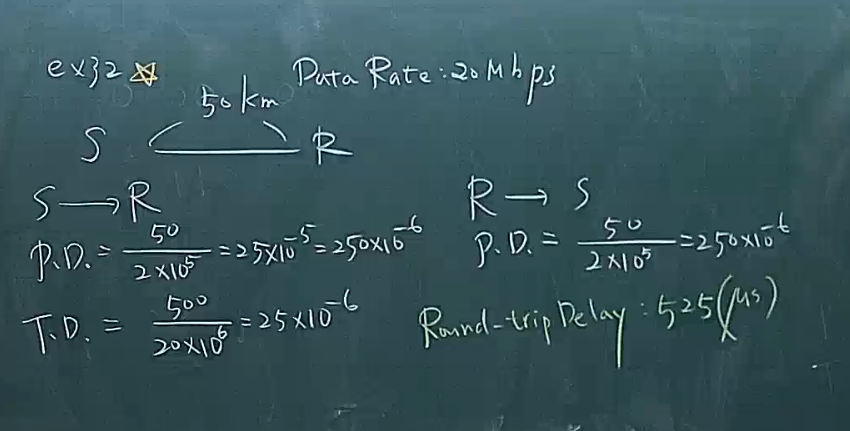 ex32 ☆ Data Rate: 20 Mbps
50km
S R
S → R
P.D. = 50 / 2×10^5 = 25×10^-5 = 250×10^-6
T.D. = 500 / 20×10^6 = 25×10^-6
R → S
P.D. = 50 / 2×10^5 = 250×10^-6
Round-trip Delay: 525 (μs)